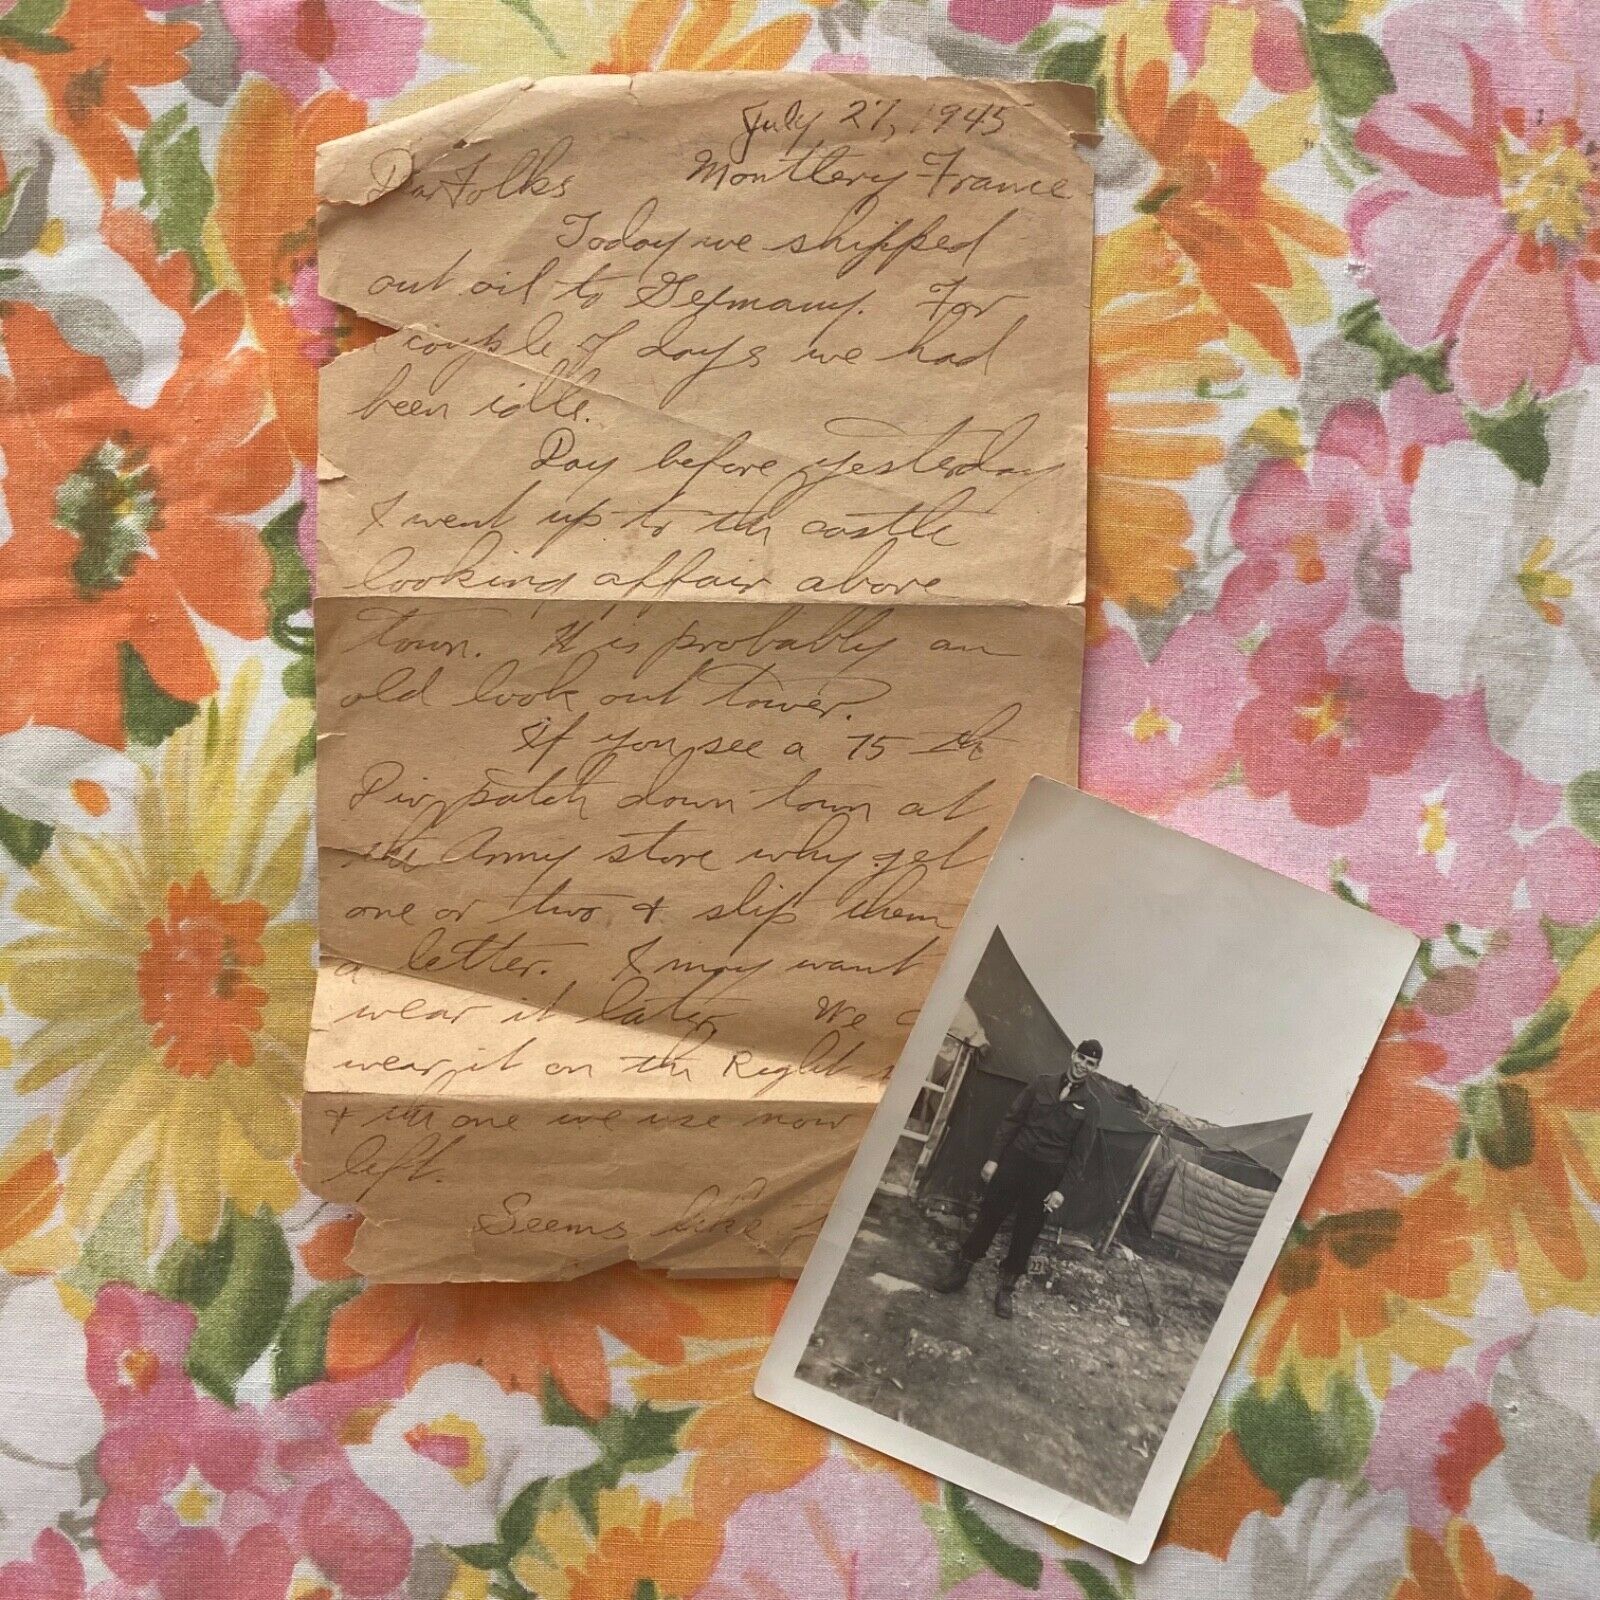 July 27, 1945
Montlery France
Dear Folks
Today we shipped
out oil to Germany. For
couple of days we had
been idle.
Day before yesterday
I went up to the castle
looking affair above
town. It is probably an
old look out tower.
If you see a 75 th
Div patch down town at
the Army store why get
one or two & slip them
a letter. I may want
wear it later. We
wear it on the Right
& the one we use now
left.
Seems like